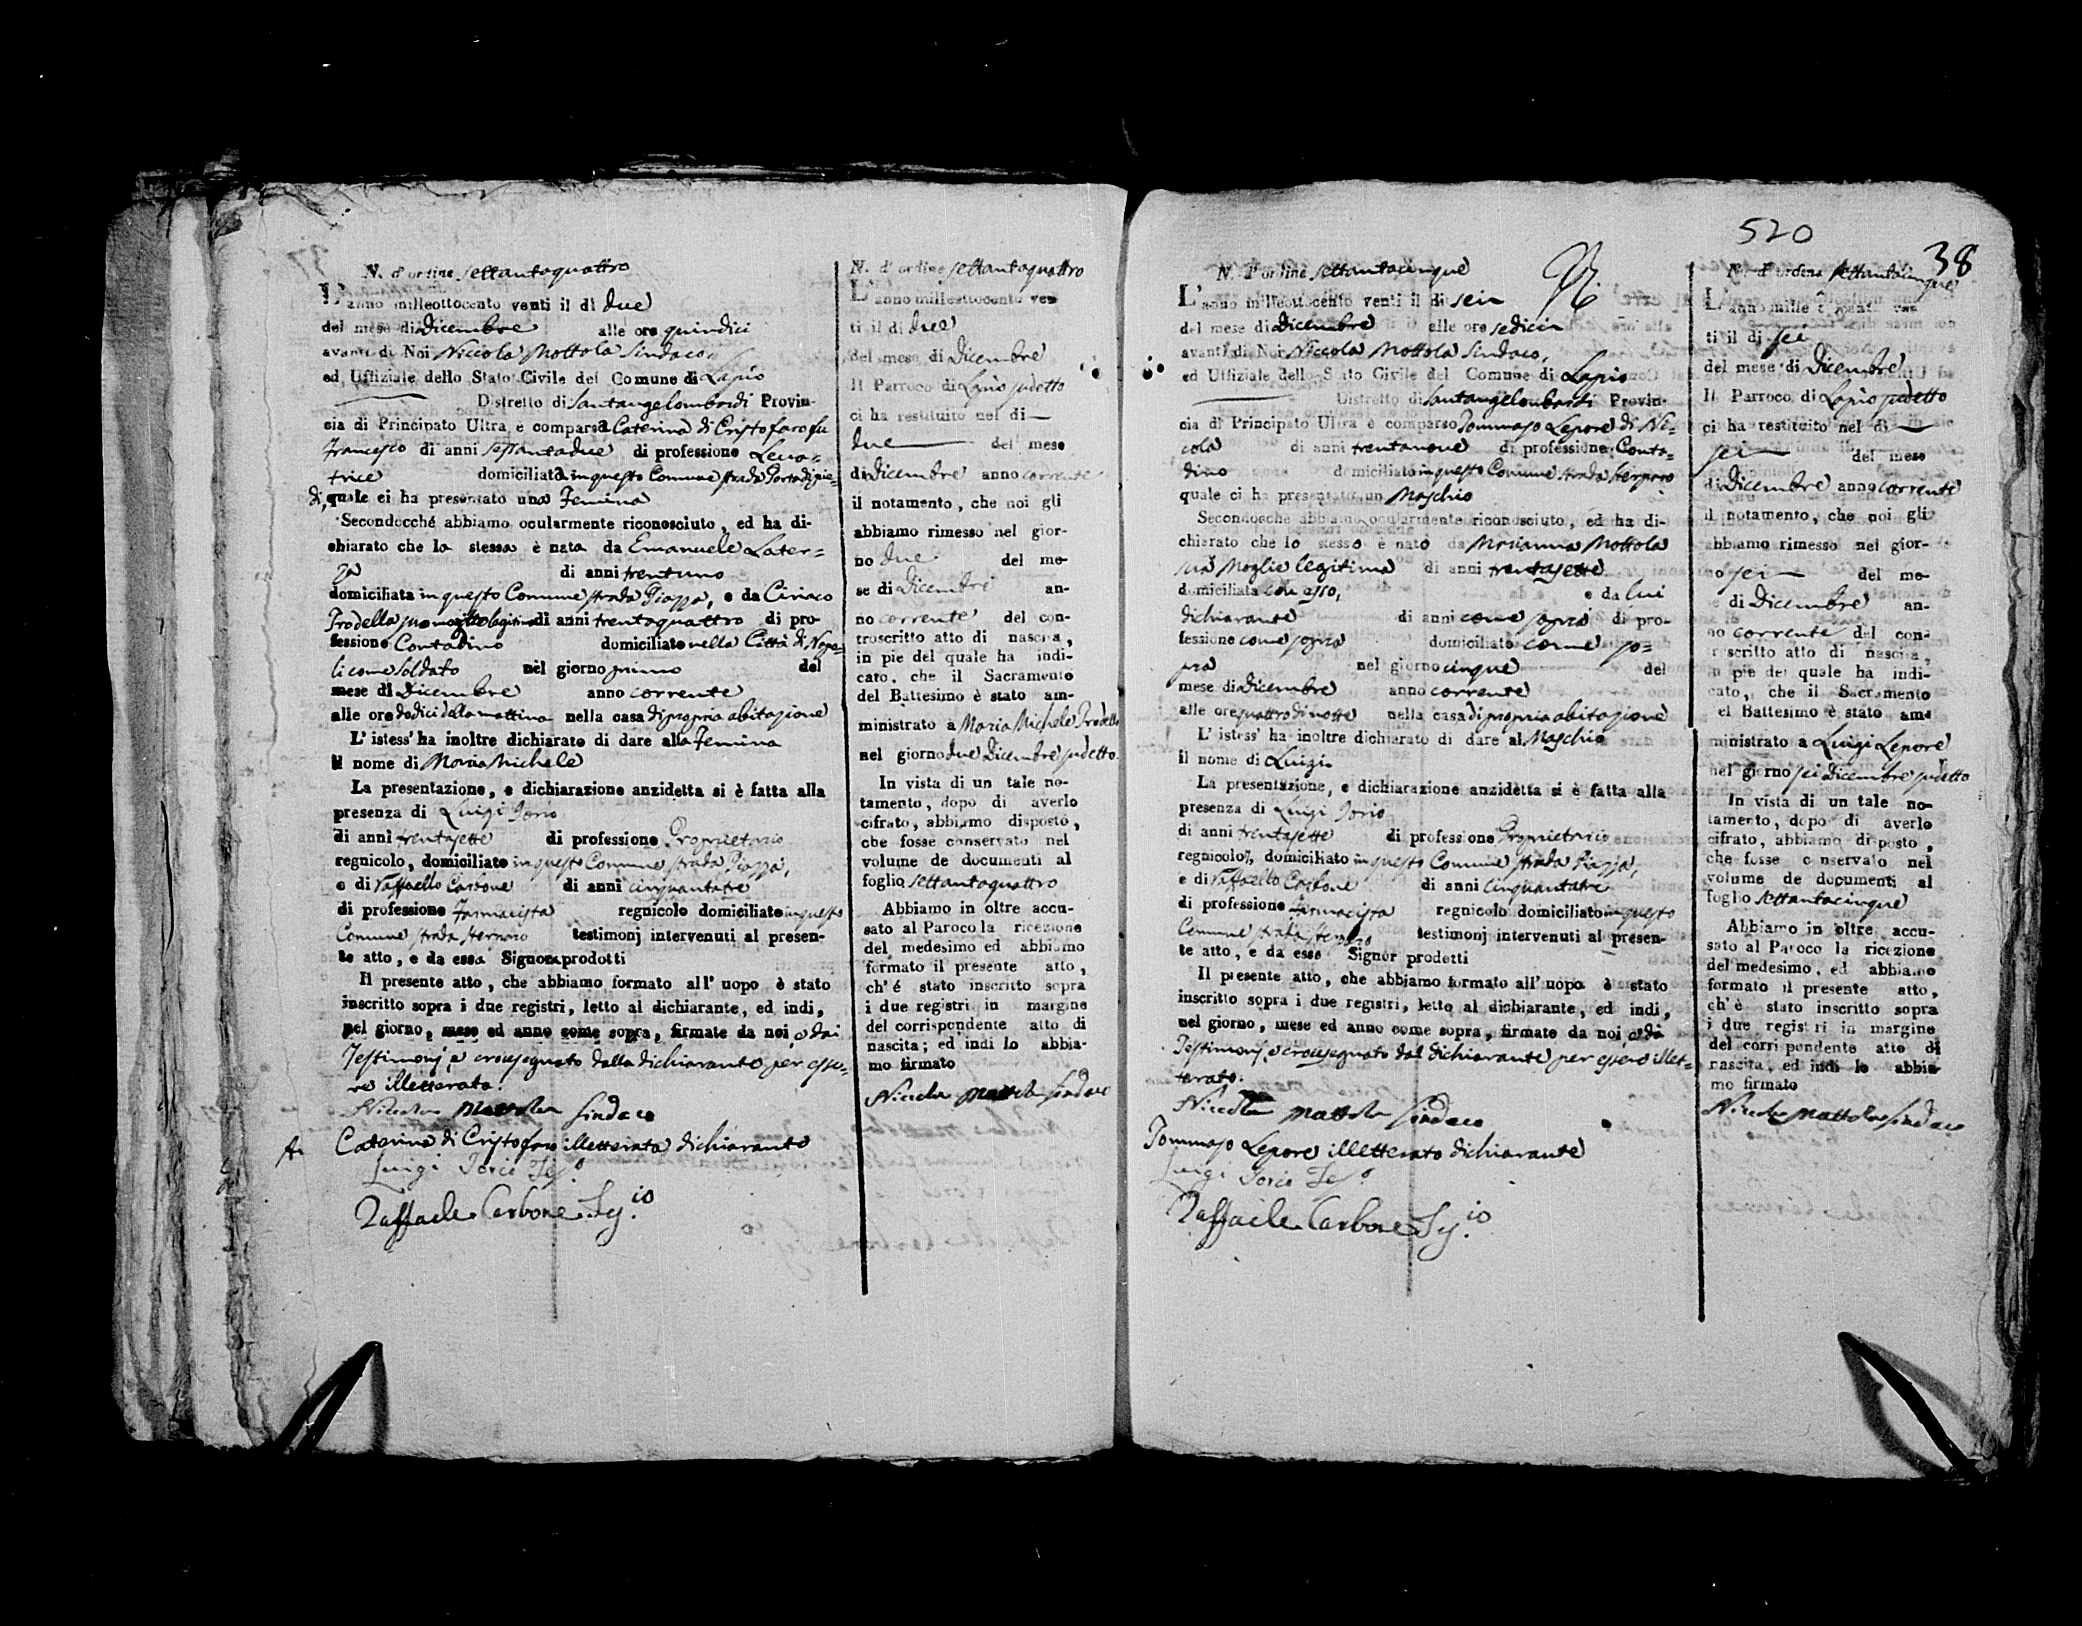 N. d'ordine settantaquattro
L'anno milleottocento venti il di due
del mese di Dicembre alle ore quindici
avanti di Noi Niccola Mottola Sindaco,
ed Uffiziale dello Stato Civile del Comune di Lapio
Distretto di Santangelombardi Provin-
cia di Principato Ultra è comparsa Caterina di Cristofaro fu
Francesco di anni sessantadue di professione Leva-
trice domiciliata in questo Comune strada Portadipie-
di, quale ci ha presentato una Femina
Secondocché abbiamo ocularmente riconosciuto, ed ha di-
chiarato che la stessa è nata da Emanuele Later-
za di anni trentuno
domiciliata in questo Comune strada Piazza, e da Ciriaco
Trodella suo marito legitimo di anni trentaquattro di pro-
fessione Contadino domiciliato nella Città di Napo-
li come soldato nel giorno primo del
mese di Dicembre anno corrente
alle ore dodici della mattina nella casa di propria abitazione
L'istess' ha inoltre dichiarato di dare alla Femina
il nome di Maria Michele
La presentazione, e dichiarazione anzidetta si è fatta alla
presenza di Luigi Iorio
di anni trentasette di professione Proprietario
regnicolo, domiciliato in questo Comune strada Piazza,
e di Raffaello Carbone di anni cinquantatre
di professione Farmacista regnicolo domiciliato in questo
Comune strada sterparo testimonj intervenuti al presen-
te atto, e da essa Signora prodotti
Il presente atto, che abbiamo formato all'uopo è stato
inscritto sopra i due registri, letto al dichiarante, ed indi,
nel giorno, mese ed anno come sopra, firmate da noi, e dai
Testimonj, e crocesegnato dalla dichiarante per esse-
re illetterata.
Niccola Mottola Sindaco
Caterina di Cristofaro illetterata dichiarante
Luigi Iorio Tes.º
Raffaele Carbone Tes.io
N. d'ordine settantaquattro
L'anno milleottocento ven
ti il di due
del mese di Dicembre
Il Parroco di Lapio sudetto
ci ha restituito nel di
due del mese
di Dicembre anno corrente
il notamento, che noi gli
abbiamo rimesso nel gior-
no due del me-
se di Dicembre an-
no corrente del con-
troscritto atto di nascita,
in pie del quale ha indi-
cato, che il Sacramento
del Battesimo è stato am-
ministrato a Maria Michele Trodella
nel giorno due Dicembre sudetto.
In vista di un tale no-
tamento, dopo di averlo
cifrato, abbiamo disposto,
che fosse conservato nel
volume de documenti al
foglio settantaquattro
Abbiamo in oltre accu-
sato al Paroco la ricezione
del medesimo ed abbiamo
formato il presente atto,
ch'é stato inscritto sopra
i due registri in margine
del corrispondente atto di
nascita; ed indi lo abbia-
mo firmato
Niccola Mottola Sindaco
520
38
N. d'ordine settantacinque
L'anno milleottocento venti il di sein
del mese di Dicembre alle ore sedicin
avanti di Noi Niccola Mottola Sindaco,
ed Uffiziale dello Stato Civile del Comune di Lapio
Distretto di Santangelombardi Provin-
cia di Principato Ultra è comparso Tommaso Lepore di Ni-
cola di anni trentanove di professione Conta-
dino domiciliato in questo Comune strada sterparo
quale ci ha presentato un Maschio
Secondocche abbiamo ocularmente riconosciuto, ed ha di-
chiarato che lo stesso è nato da Marianna Mottola
sua Moglie legitima di anni trentasette
domiciliata con esso, e da lui
dichiarante di anni come sopra di pro-
fessione come sopra domiciliato come so-
pra nel giorno cinque del
mese di Dicembre anno corrente
alle ore quattro di notte nella casa di propria abitazione
L'istess' ha inoltre dichiarato di dare al Maschio
il nome di Luigi
La presentazione, e dichiarazione anzidetta si è fatta alla
presenza di Luigi Iorio
di anni trentasette di professione Proprietario
regnicolo, domiciliato in questo Comune strada Piazza,
e di Raffaello Carbone di anni cinquantatre
di professione Farmacista regnicolo domiciliato in questo
Comune strada sterparo testimonj intervenuti al presen-
te atto, e da esso Signor prodotti
Il presente atto, che abbiamo formato all'uopo è stato
inscritto sopra i due registri, letto al dichiarante, ed indi,
nel giorno, mese ed anno come sopra, firmate da noi, e da
Testimonj, e crocesegnato dal dichiarante per essere illet-
terato.
Niccola Mottola Sindaco
Tommaso Lepore illetterato dichiarante
Luigi Iorio Tes.º
Raffaele Carbone Tes.io
N. d'ordine settantacinque
L'anno mille ottocento ven
ti il di sei
del mese di Dicembre
Il Parroco di Lapio sudetto
ci ha restituito nel di
sei del mese
di Dicembre anno corrente
il notamento, che noi gli
abbiamo rimesso nel gior-
no sei del me-
se di Dicembre an-
no corrente del con-
troscritto atto di nascita,
in pie del quale ha indi-
cato, che il Sacramento
del Battesimo è stato am-
ministrato a Luigi Lepore
nel giorno sei Dicembre sudetto
In vista di un tale no-
tamento, dopo di averlo
cifrato, abbiamo disposto,
che fosse conservato nel
volume de documenti al
foglio settantacinque
Abbiamo in oltre accu-
sato al Paroco la ricezione
del medesimo, ed abbiamo
formato il presente atto,
ch'è stato inscritto sopra
i due registri in margine
del corrispondente atto di
nascita, ed indi lo abbia-
mo firmato
Niccola Mottola Sindaco